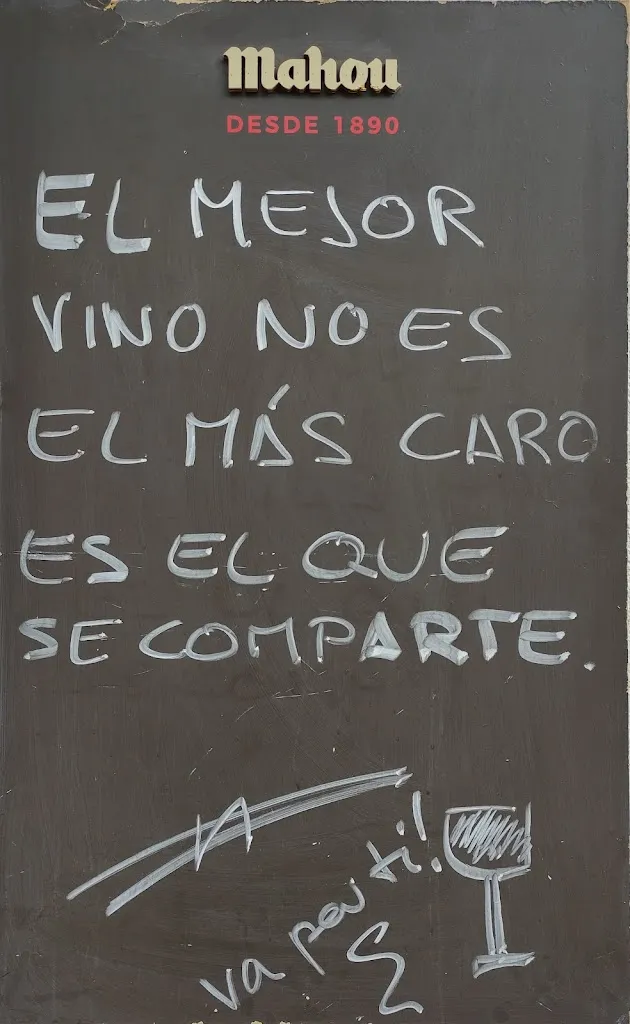 Mahou
DESDE 1890
EL MEJOR
VINO NO ES
EL MÁS CARO
ES EL QUE
SE COMPARTE.
va por ti!